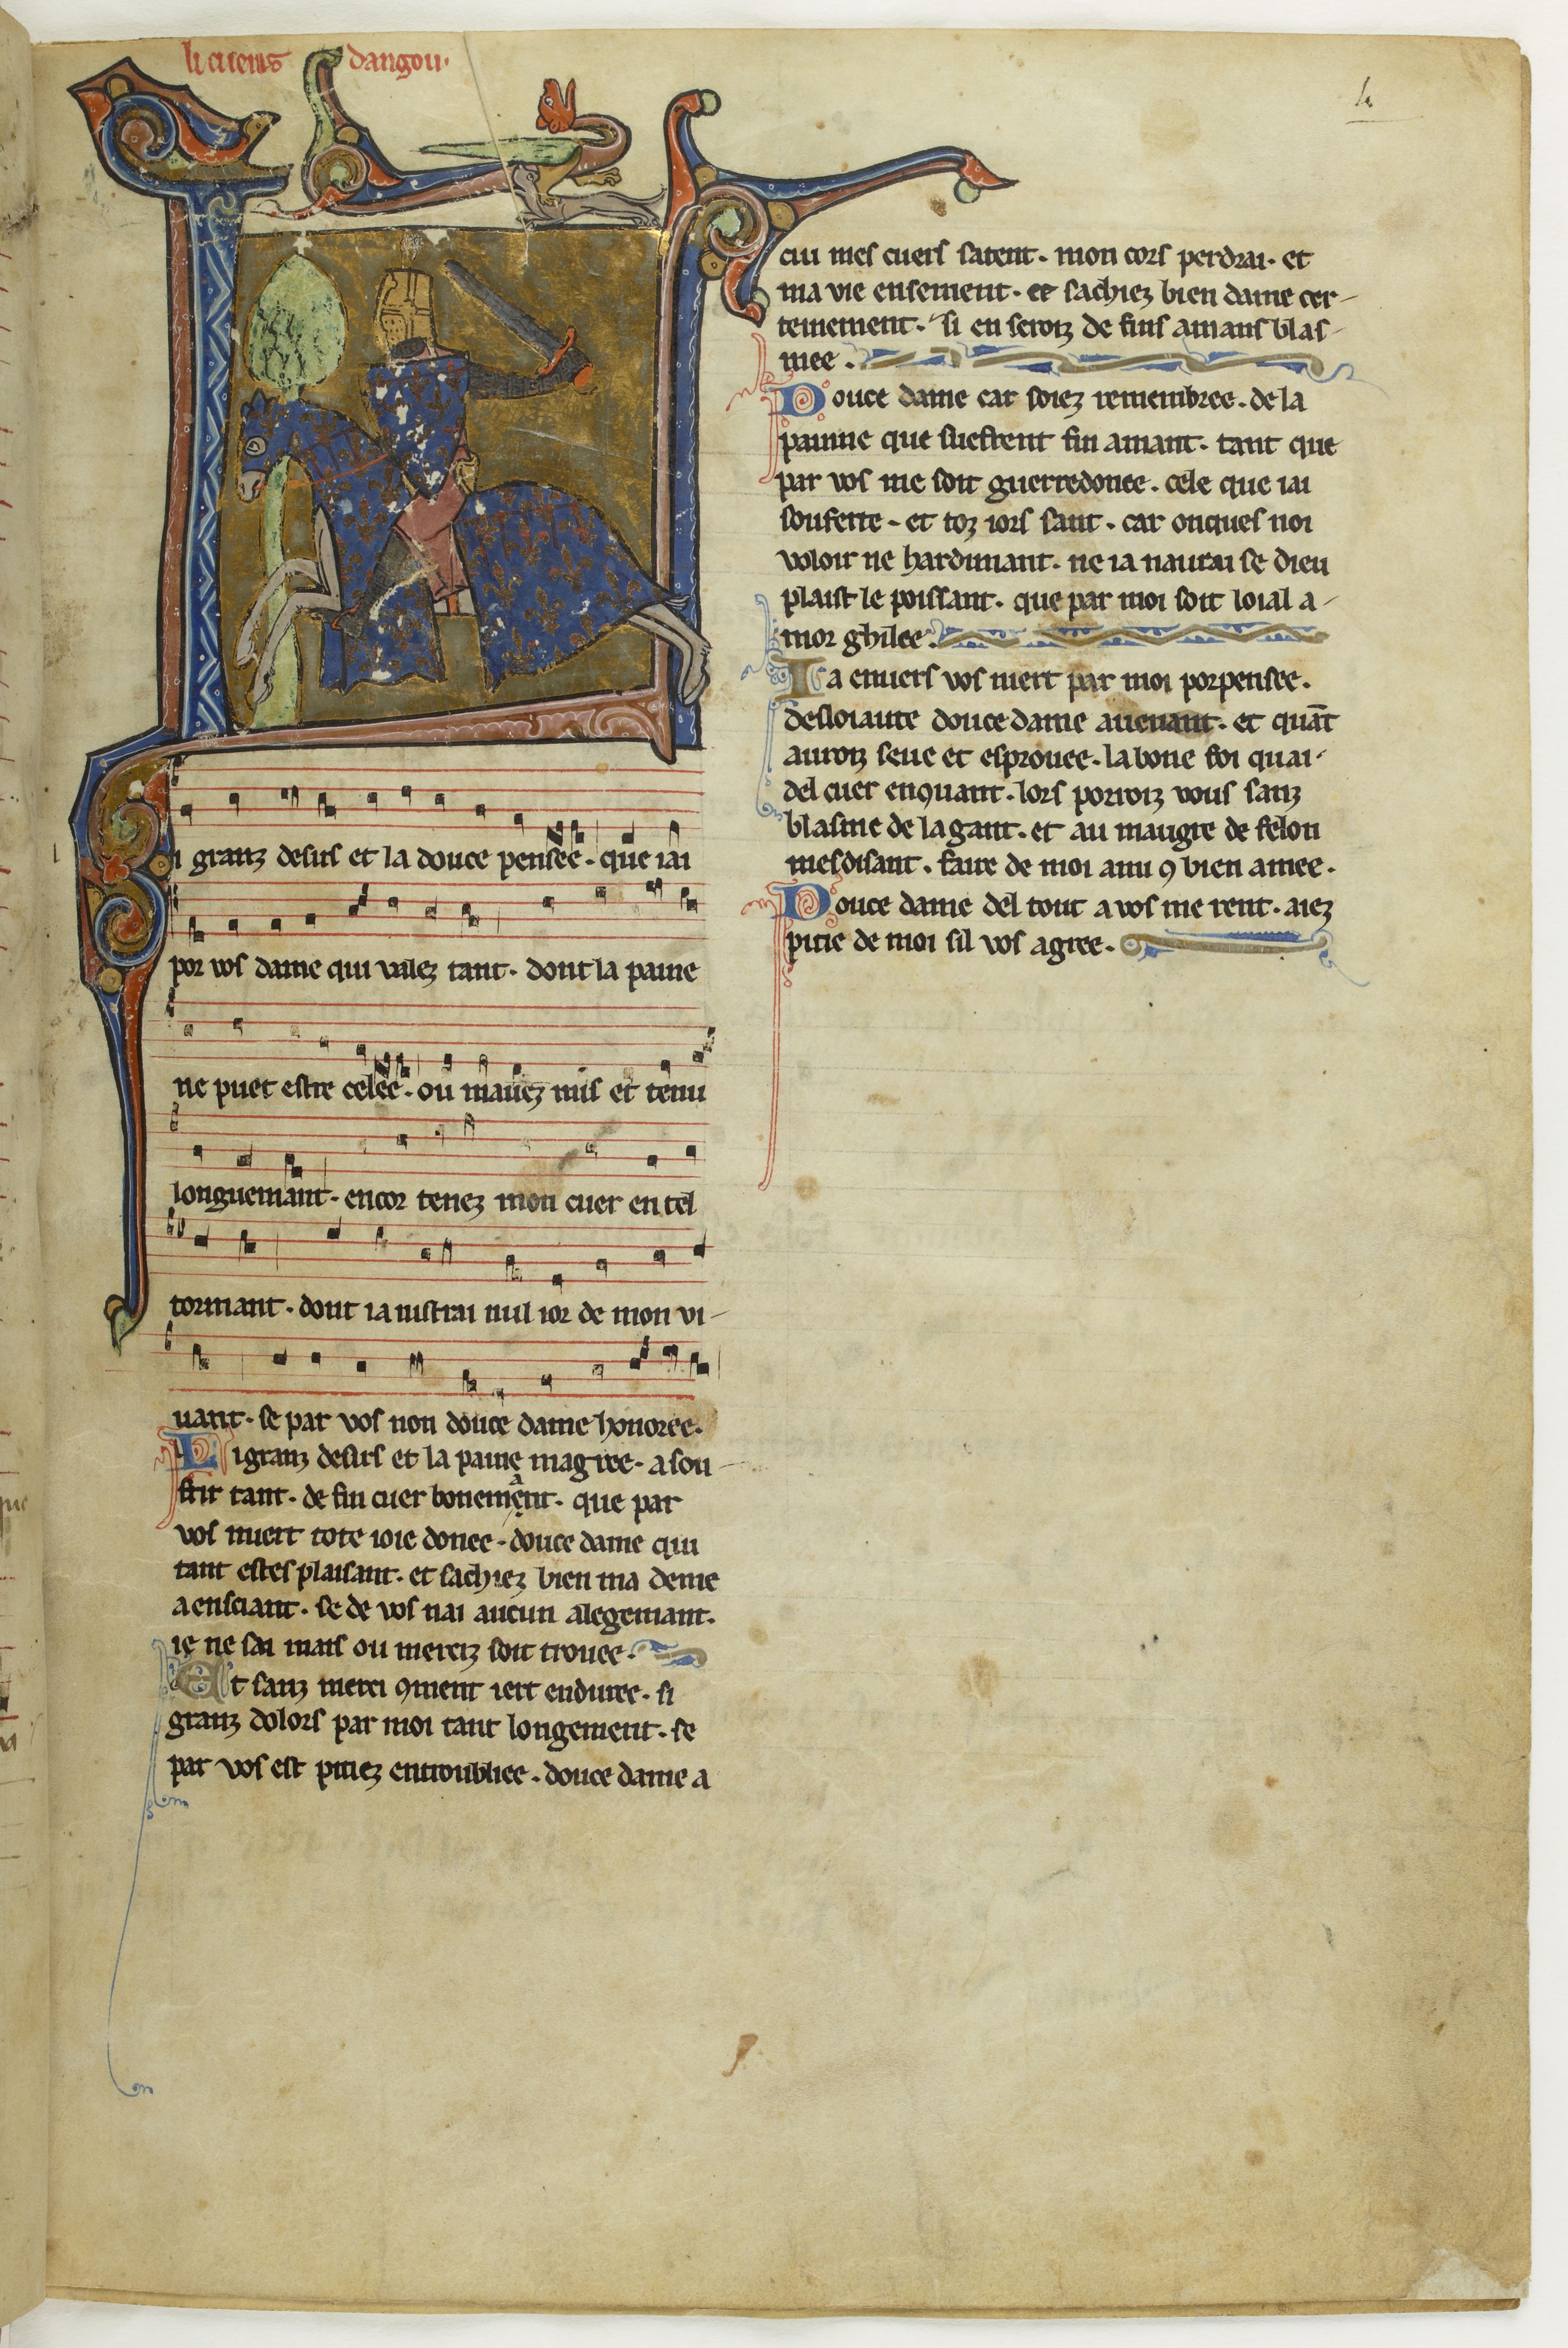 li cuens dangou.
4
Li granz desirs et la douce pensee. que iai
por vos dame qui valez tant. dont la paine
ne puet estre celee. ou mauez mis et tenu
longuemant. encor tenez mon cuer en tel
tormant. dont ia nistrai nul ior de mon vi-
uant. se par vos non douce dame honoree.
Li granz desirs et la paine magree. a sou-
frir tant. de fin cuer bonemant. que par
vos niert tote ioie donee. douce dame qui
tant estes plaisant. et sachiez bien ma deme
a ensciant. se de vos nai aucun alegemant.
ie ne sai mais ou merciz soit trouee.
Et sanz merci 9ment iert enduree. si
granz dolors par moi tant longement. se
par vos est pitiez entroubliee. douce dame a
cui mes cuers satent. mon cors perdrai. et
ma vie ensement. et sachiez bien dame cer-
tenement. si en seroiz de fins amans blas-
mee.
Douce dame car soiez remembree. de la
painne que suefrent fin amant. tant que
par vos me soit guerredonee. cele que iai
souferte. et toz iors sant. car onques noi
voloir ne hardimant. ne ia naurai se dieu
plaist le poissant. que par moi soit loial a-
mor ghilee.
Ia enuers vos niert par moi porpensee.
desloiaute douce dame auenant. et quāt
auroiz seue et esprouee. la bone foi quai
del cuer enquant. lors porroiz vous sanz
blasme de la gant. et au maugre de felon
mesdisant. faire de moi ami 9 bien amee.
Douce dame del tout a vos me rent. aiez
pitie de moi sil vos agree.